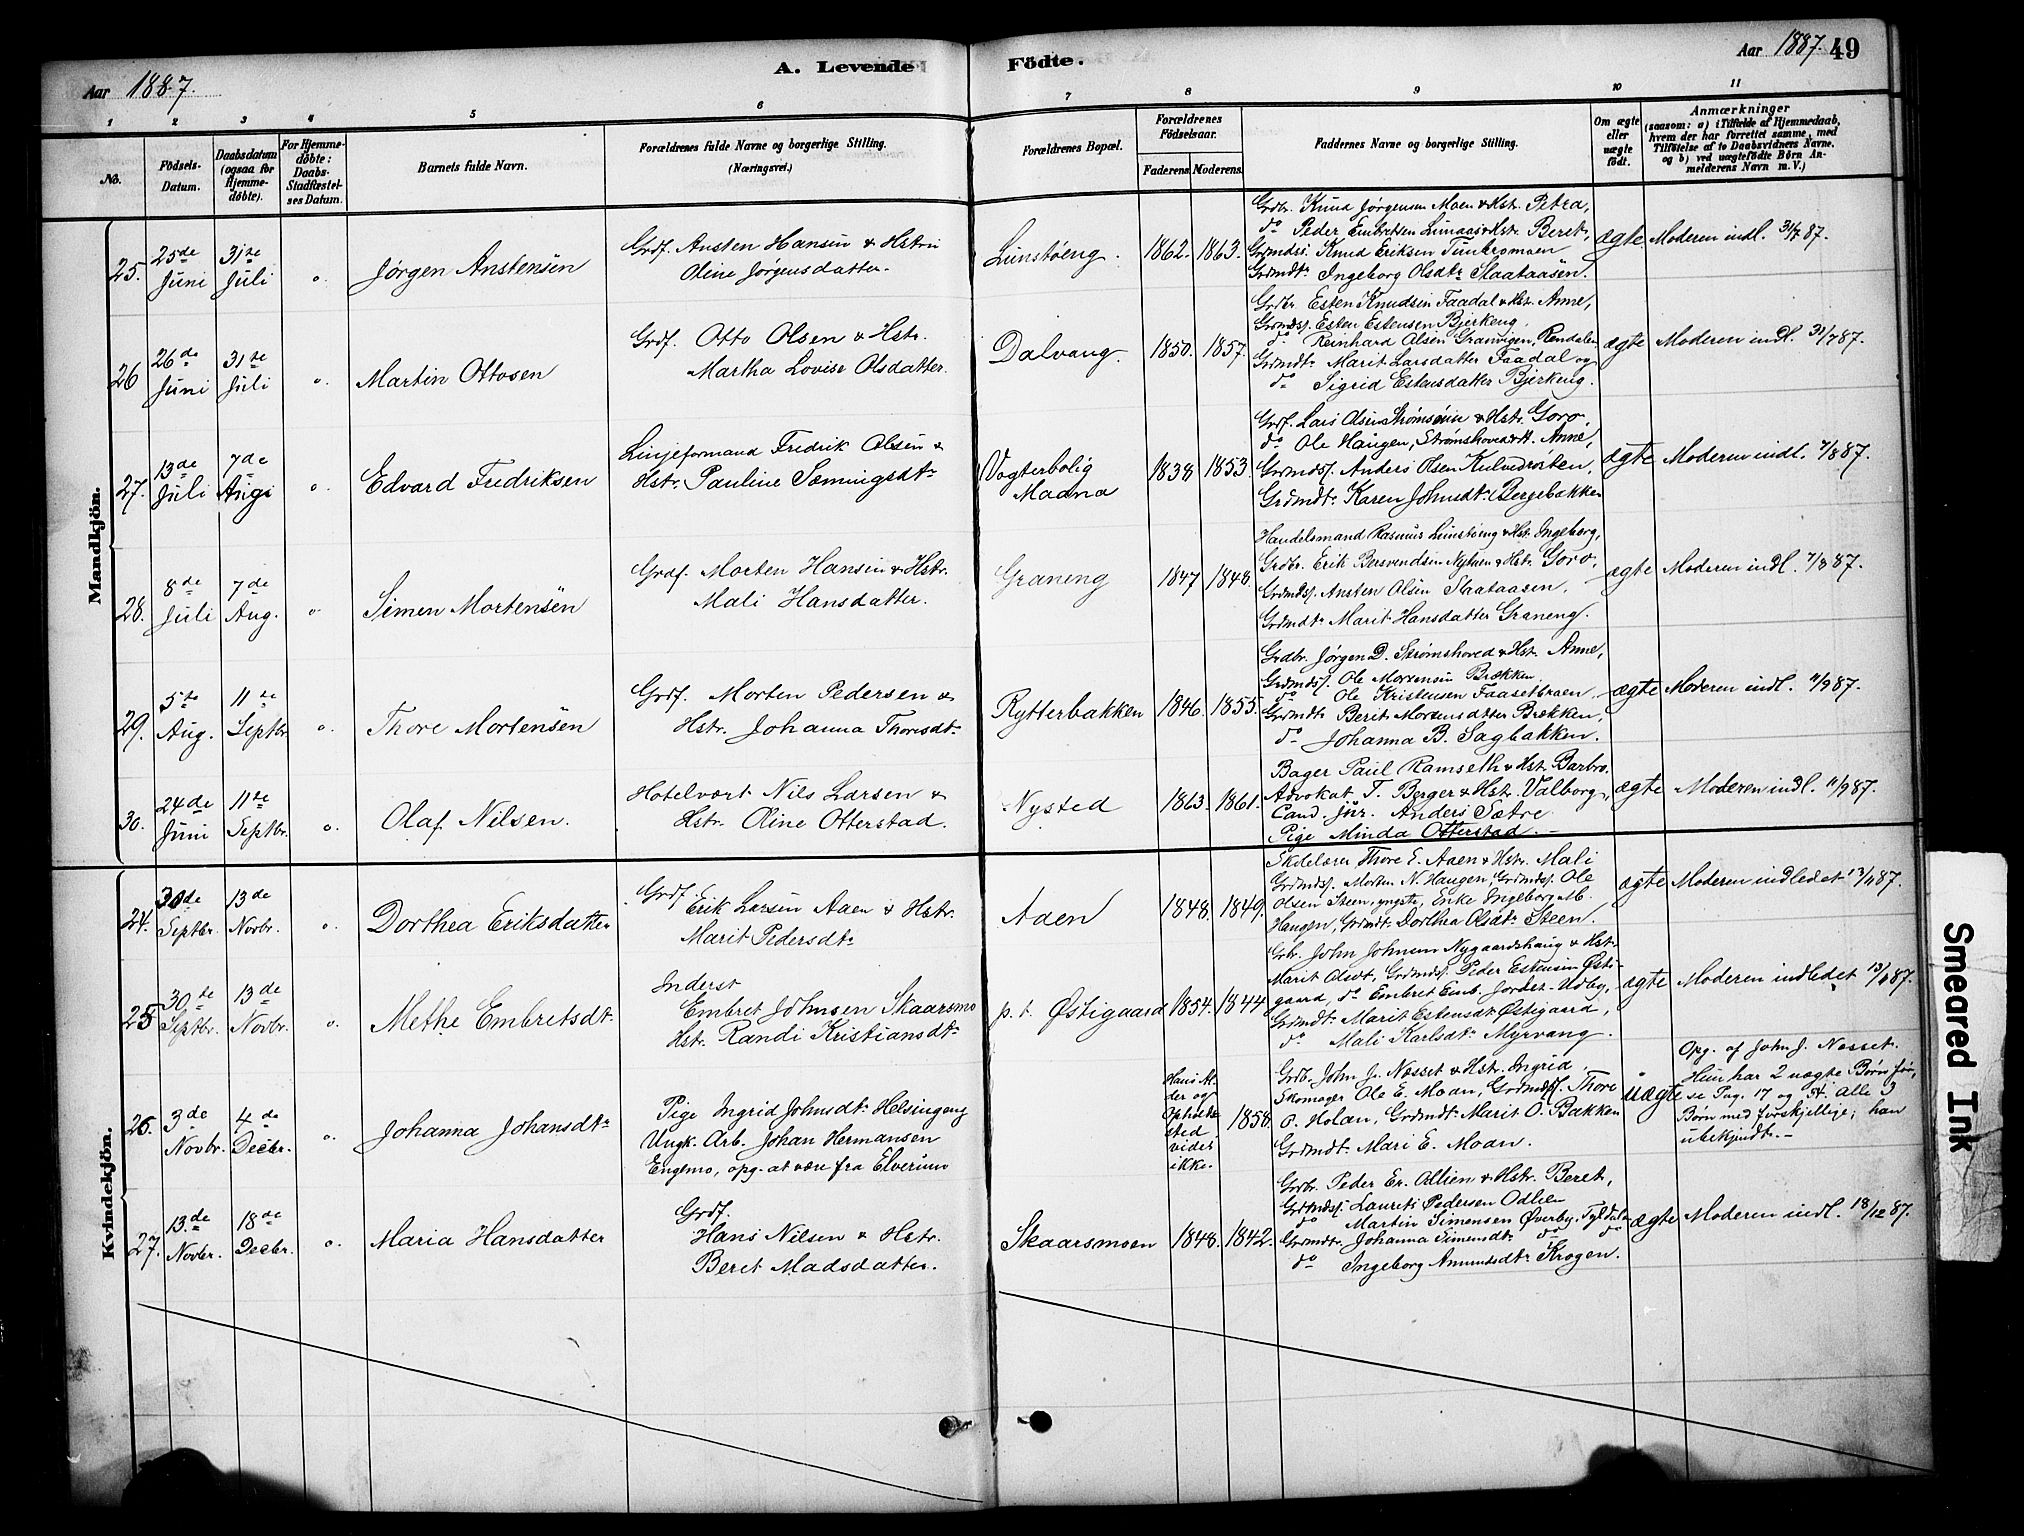 Aar 1887.
A. Levende Födte.
Aar 1887. 49
1 2 3 4 5 6 7 8 9 10 11
No.
Födsels-Datum.
Daabsdatum (ogsaa for Hjemmedöbte).
For Hjemmedöbte: Daabs-Stadfæstelses Datum.
Barnets fulde Navn.
Forældrenes fulde Navne og borgerlige Stilling. (Næringsvei.)
Forældrenes Bopæl.
Forældrenes Födselsaar.
Faderens. Moderens.
Faddernes Navne og borgerlige Stilling.
Om ægte eller uægte födt.
Anmærkninger
(saasom: a) i Tilfælde af Hjemmedaab, hvem der har forrettet samme, med Tilföielse af to Daabsvidners Navne, og b) ved uægtefödte Börn Anmelderens Navn m. V.)
Mandkjön.
25. 25de Juni 31te Juli " Jørgen Anstensen
Grdf. Ansten Hansen & Hstru
Oline Jørgensdatter.
Lunstøeng. 1862. 1863.
Grdbr. Knud Jørgensen Moen & Hst. Petra,
do Peder Embretsen Lunaas & Hst. Beret,
Grdmds. Knud Eriksen Tunbromoen
Grdmdtr Ingeborg Olsdtr Slaataasen.
ægte Moderen indl. 31/7 87.
26 26de Juni 31te Juli " Martin Ottosen
Grdf. Otto Olsen & Hstr.
Martha Lovise Olsdatter.
Dalvang. 1850. 1857.
Grdbr. Esten Knudsen Faadal & Hst. Anne,
Grdmdss. Esten Estensen Bjerkeng,
do Reinhard Olsen Granvigen, Rendalen
Grdmdtr Marit Larsdatter Faadal og
do Sigrid Estensdatter Bjerkeng.
ægte Moderen indl. 31/7 87.
27. 13de Juli 7de Augs " Edvard Fredriksen
Linjeformand Fredrik Olsen &
Hstr. Pauline Sæmingsdtr
Vogterbolig
Maana
1838 1853.
Grdf. Lars Olsen Strømsøien & Hst. Goro,
do Ole Haugen, Strømshoved & Hst. Anne,
Grdmdss. Anders Olsen Kulvedrøsten,
Grdmdtr Karen Johnsdtr Bergebakken
ægte Moderen indl. 7/8 87.
28. 8de Juli 7de Aug. " Simen Mortensen
Grdf. Morten Hansen & Hstr.
Mali Hansdatter.
Graneng 1847 1848.
Handelsmand Rasmus Lunstøeng & Hst. Ingeborg,
Grdbr. Erik Bersvendsen Nytrøen & Hst. Goro,
Grdmdss. Ansten Olsen Slaataasen,
Grdmdtr Marit Hansdatter Graneng.
ægte Moderen indl. 7/8 87.
29. 5te Aug. 11te Septbr. " Thore Mortensen
Grdf. Morten Pedersen &
Hstr. Johanna Thoresdtr
Rytterbakken 1846. 1855.
Grdbr. Jørgen D. Strømshoved & Hst. Anne,
Grdmdss. Ole Mortensen Brækken
do Ole Kristensen Faasetbraaen
Grdmdtr Berit Mortensdatter Brækken,
do Johanna B. Sagbakken.
ægte Moderen indl. 11/9 87.
30. 24de Juni 11te Septbr. o. Olaf Nilsen.
Hotelvært Nils Larsen &
Hstr. Oline Otterstad.
Nysted 1863. 1861.
Bager Paul Ramseth & Hst. Barbro.
Advokat T. Berger & Hstr. Valborg,
Cand. jur. Anders Sætre
Pige Minda Otterstad.
ægte Moderen indl. 11/9 87.
Kvindekjön.
24. 30de Septbr. 13de Novbr. o. Dorthea Eriksdatter
Grdf.
Erik Larsen Aaen & Hstr.
Marit Pedersdtr
Aaen 1848. 1849.
Skolelærer Thore E. Aaen & Hstr. Mali
Grdmdss. Morten N. Haugen, Grdmdss. Ole
Olsen Steen, yngste, Enke Ingeborg M.
Haugen, Grdmdtr Dorthea Olsdtr Steen.
ægte Moderen indledet 13/11 87.
25 30te Septbr. 13de Novbr. o. Methe Embretsdtr
Inderst
Embret Johnsen Skaarsmo
Hstr. Randi Kristiansdtr
p. t. Østigaard 1854. 1844
Grb. John Johnsen Nygaardshaug & Hst.
Marit Olsdt, Grdmdss. Peder Estensen Østi-
gaard, do Embret Emb. Jordet-Udby,
Grdmdtr Marit Estensdt Østigaard,
do Mali Karlsdtr Myrvang.
ægte Moderen indledet 13/11 87.
26. 3de Novbr. 4de Decbr. o. Johanna Johansdtr
Pige Ingrid Johnsdtr Helsingeng
Ungk. Arb. Johan Hermansen
Engemo, opg. at være fra Elverum
Hans Al-
der og
Opholds
sted
vides
ikke.
1858.
Grdb. John J. Næsset & Hstr. Ingrid,
Skomager Ole E. Moan, Grdmdss. Thore
O. Holan, Grdmdt Marit O. Bakken
Grdmdt. Mari E. Moan.
uægte
Opg. af John J. Nesset.
Hun har 2 uægte Børn før,
se Pag. 17 og 34. Alle 3
Børn med forskjellige; han
ubekjendt.
27. 13de Novbr. 18de Decbr. o. Maria Hansdatter
Grdf.
Hans Nilsen & Hstr.
Beret Madsdatter.
Skaarsmoen 1848. 1842.
Grdbr. Peder Er. Odlien & Hstr. Beret,
Grdmdss. Laurits Pedersen Odlien
do Martin Simensen Øverby, Tyldalen
Grdmdt. Johanna Simensdtr do do
do Ingeborg Amundsdtr Krogen.
ægte Moderen indl. 18/12 87.
Smeared Ink